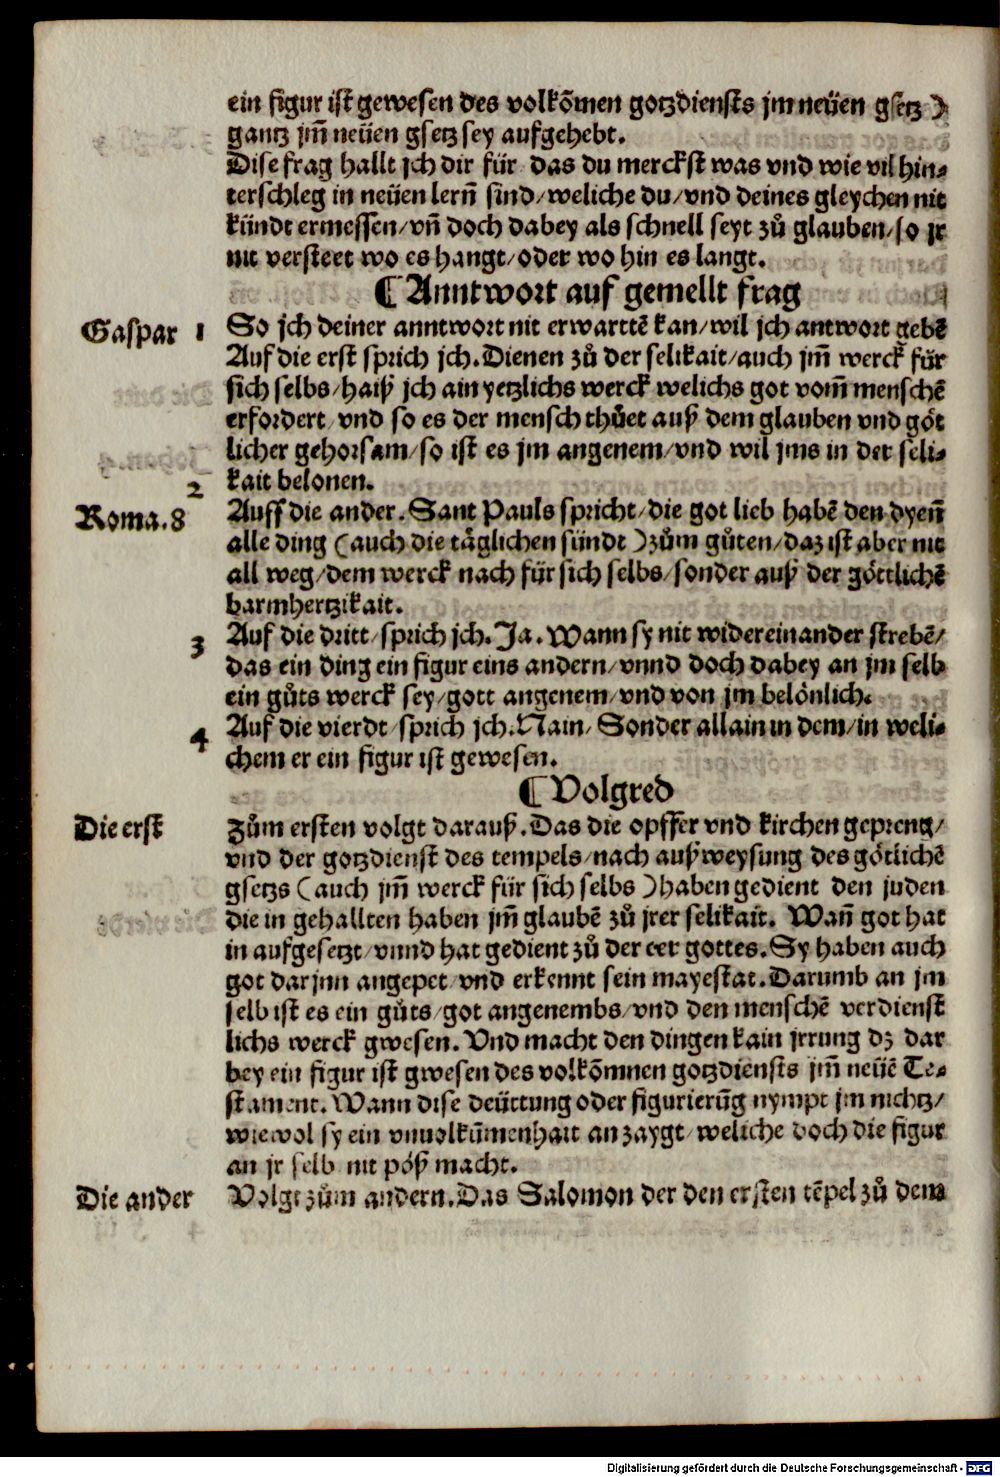 ein figur ist gewesen des volkõmen gotzdiensts jm neüen gsetz )
gantz jm̃ neüen gsetz sey aufgehebt.
Dise frag hallt jch dir für das du merckst was vnd wie vil hin⸗
terschleg in neüen lern̄ sind/weliche du/vnd deines gleychen nit
kündt ermessen/vn̄ doch dabey als schnell seyt zů glauben/so jr
nit versteet wo es hangt/oder wo hin es langt.
¶ Anntwort auf gemellt frag
Gaspar 1 So jch deiner anntwort nit erwarttẽ kan/wil jch antwort gebẽ
Auf die erst sprich jch. Dienen zů der selikait/auch jm̃ werck für
sich selbs/haiß jch ain yetzlichs werck welichs got vom̃ menschẽ
erfordert/vnd so es der mensch thůet auß dem glauben vnd göt
licher gehorsam/so ist es jm angenem/vnd wil jms in der seli⸗
kait belonen.
2
Roma.8 Auff die ander. Sant Pauls spricht/die got lieb habẽ den dyen̄
alle ding (auch die täglichen sündt) zům gůten/daz ist aber nit
all weg/dem werck nach für sich selbs/sonder auß der göttlichẽ
barmhertzikait.
3 Auf die dritt/sprich jch. Ja. Wann sy nit widereinander strebẽ/
das ein ding ein figur eins andern/vnnd doch dabey an jm selb
ein gůts werck sey/gott angenem/vnd von jm belönlich.
4 Auf die vierdt/sprich jch. Nain/Sonder allain in dem/in weli⸗
chem er ein figur ist gewesen.
¶ Volgred
Die erst Zům ersten volgt darauß. Das die opffer vnd kirchen gepreng/
vnd der gotzdienst des tempels/nach außweysung des götlichẽ
gsetzs (auch jm̃ werck für sich selbs) haben gedient den juden
die in gehallten haben jm̃ glaubẽ zů jrer selikait. Wan̄ got hat
in aufgesetzt/vnnd hat gedient zů der eer gottes. Sy haben auch
got darjnn angepet/vnd erkennt sein mayestat. Darumb an jm
selb ist es ein gůts/got angenembs/vnd den menschẽ verdienst
lichs werck gwesen. Vnd macht den dingen kain jrrung dz dar
bey ein figur ist gwesen des volkõmnen gotzdiensts jm̃ neüẽ Te⸗
stament. Wann dise deüttung oder figurierũg nympt jm nichtz/
wiewol sy ein vnuolkũmenhait anzaygt/weliche doch die figur
an jr selb nit pöß macht.
Die ander Volgt zům andern. Das Salomon der den ersten tẽpel zů dem
Digitalisierung gefördert durch die Deutsche Forschungsgemeinschaft - DFG